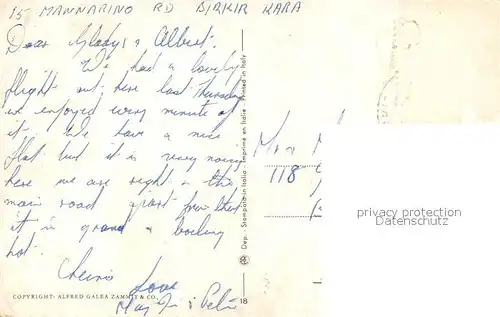 15 MANNARINO RD BIRKIRKARA
Dear Gladys & Albert.
We had a lovely
flight out here last Thursday
we enjoyed every minute of
it. We have a nice
flat but it is very noisy
here we are right on the
main road apart from that
it is grand & boiling
hot.
Cheerio
Love
May &
COPYRIGHT: ALFRED GALEA ZAMMIT & CO.,
Dep. - Stampato in Italia - Imprimé en Italie - Printed in Italy
18
118
privacy protection
Datenschutz